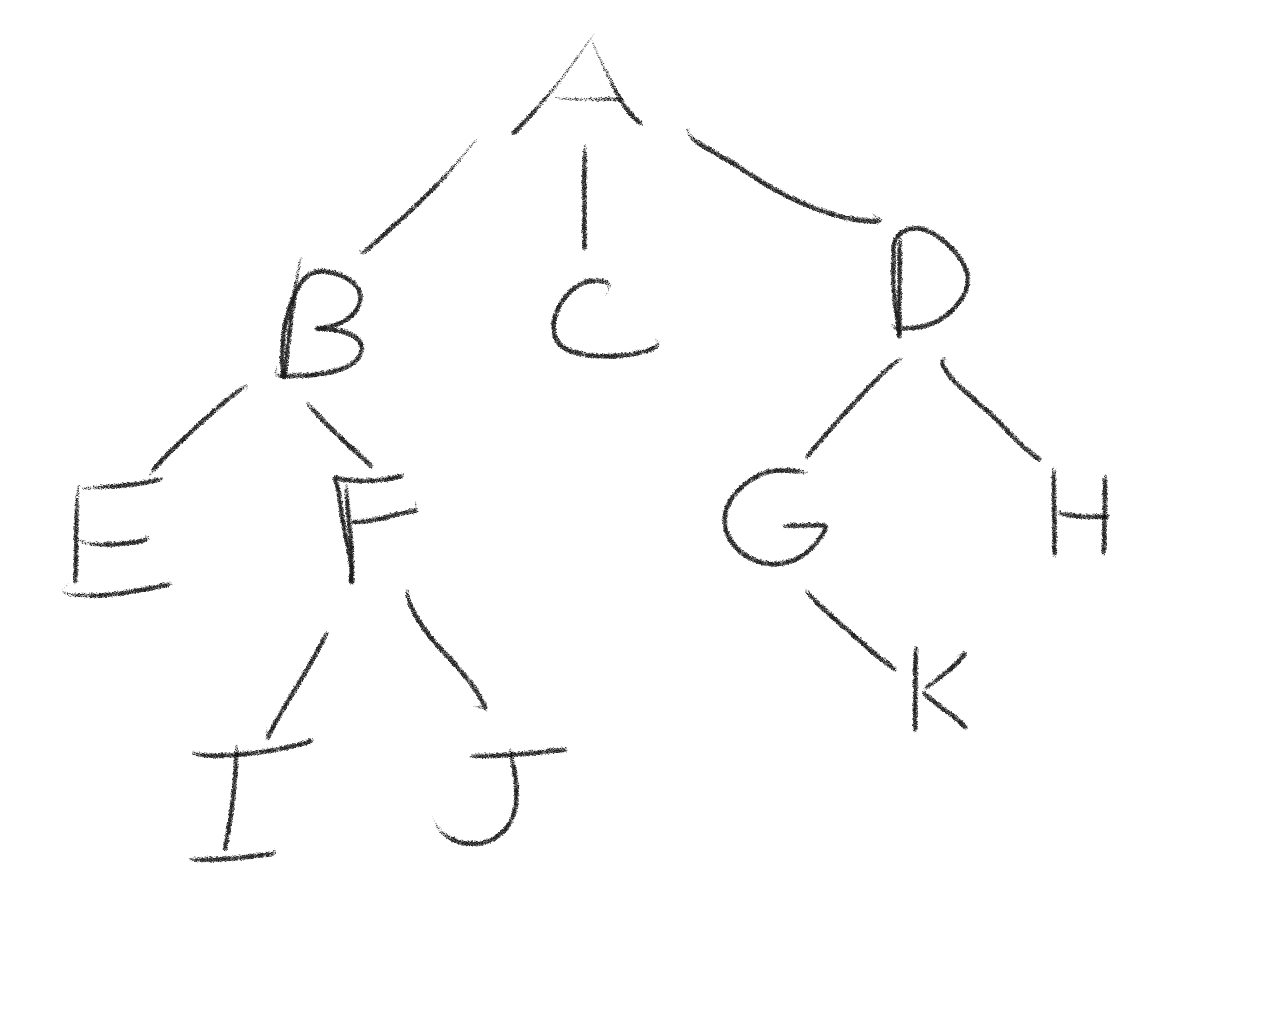 A
B C D
E F G H
I J K